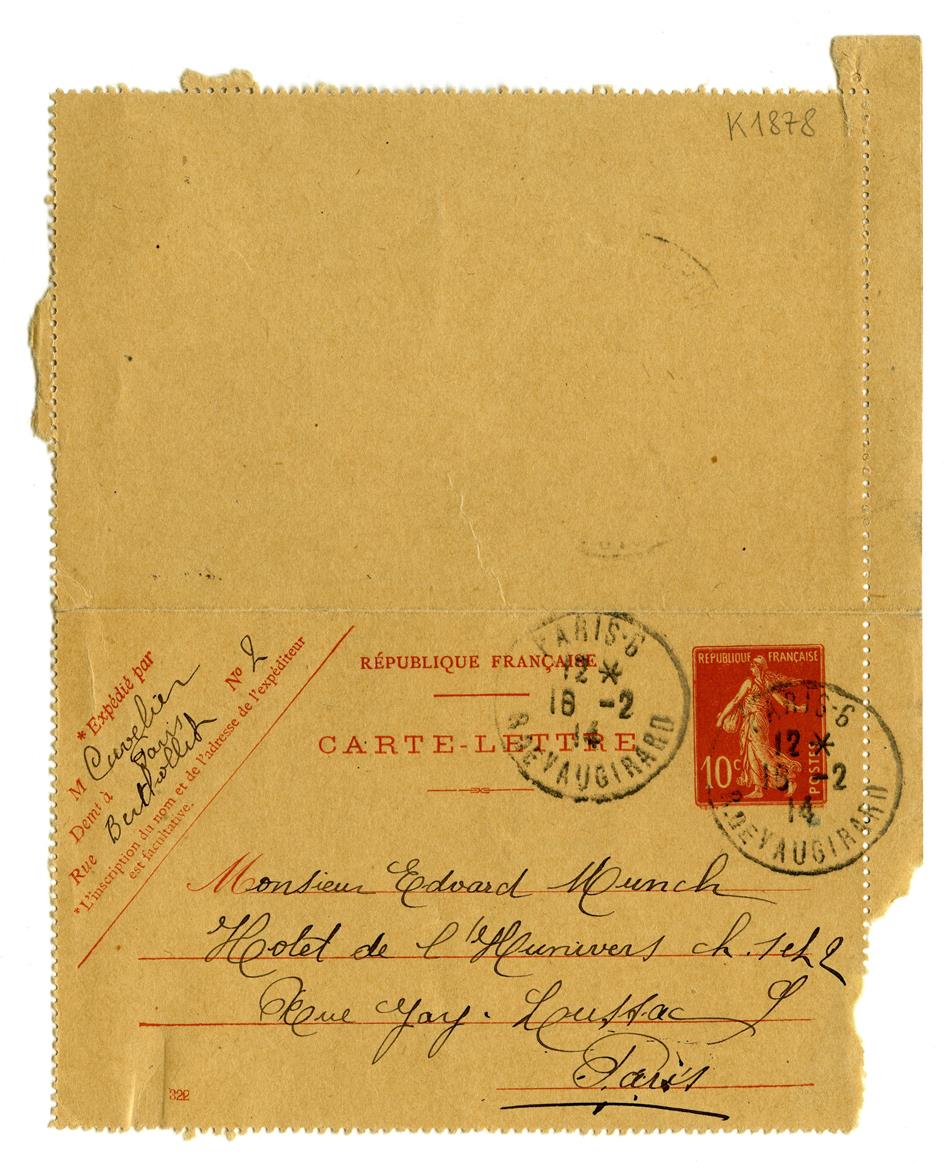 K1878
* Expédié par
M Cuvelier
Demt à Paris
Rue Berthollet No 2
*L'inscription du nom et de l'adresse de l'expéditeur
est facultative.
RÉPUBLIQUE FRANÇAISE
CARTE-LETTRE
PARIS-6
12 *
16 -2
14
R. DE VAUGIRARD
REPUBLIQUE FRANÇAISE
10c
POSTES
PARIS-6
12 *
16 -2
14
R. DE VAUGIRARD
Monsieur Edvard Munch
Hotel de l'Hunivers ch. 1 et 2
Rue Gay. Loussac
Paris
322